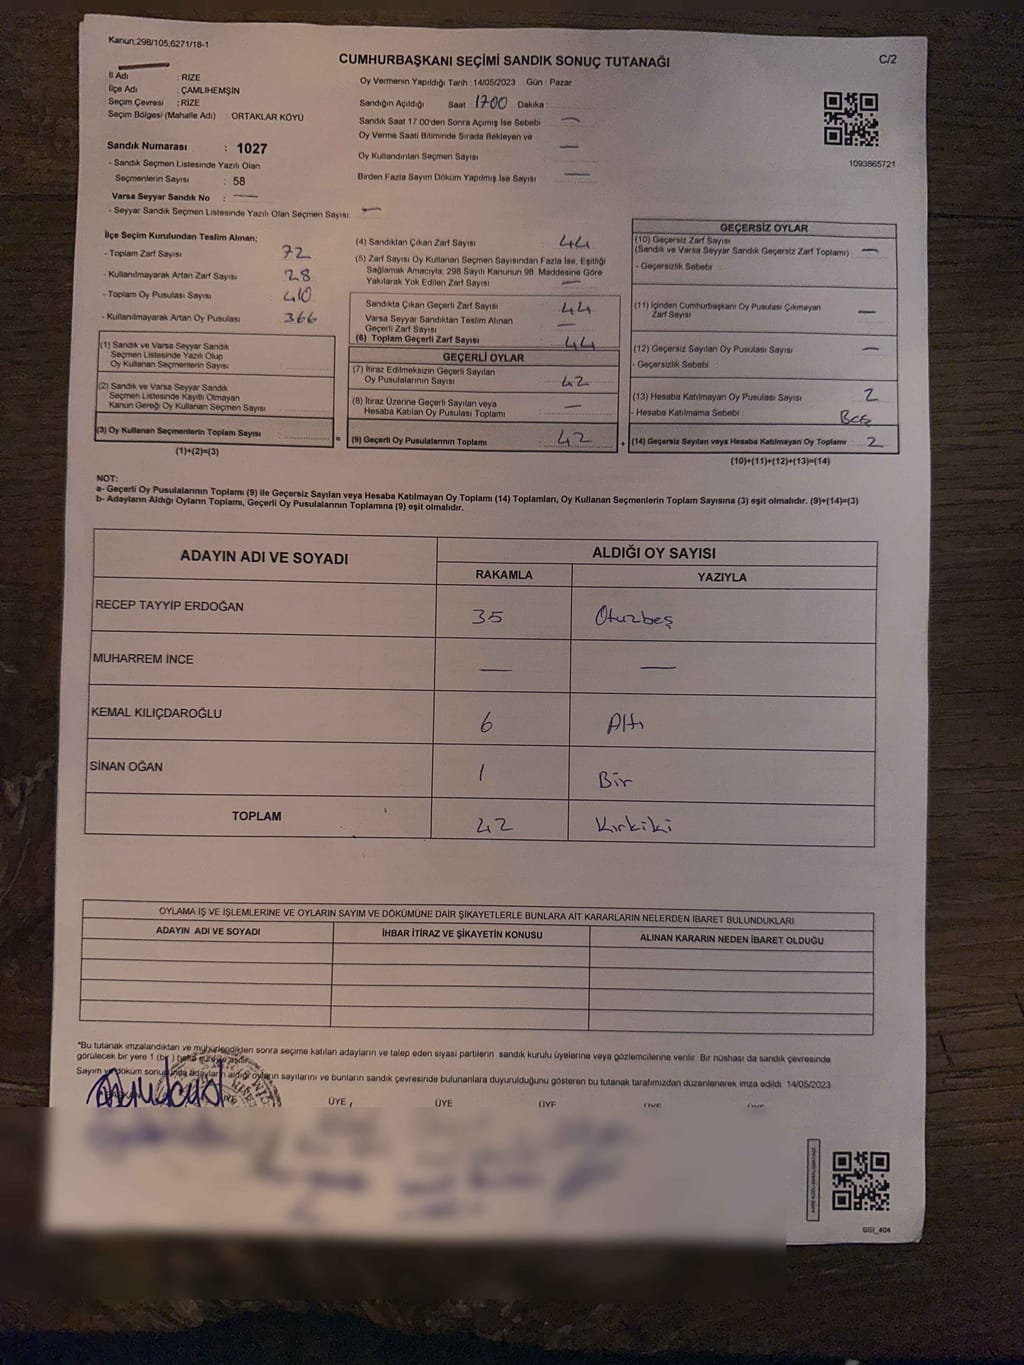 Kanun:298/105,6271/18-1
CUMHURBAŞKANI SEÇİMİ SANDIK SONUÇ TUTANAĞI
C/2
İl Adı : RİZE
İlçe Adı : ÇAMLIHEMŞİN
Seçim Çevresi : RİZE
Seçim Bölgesi (Mahalle Adı) : ORTAKLAR KÖYÜ
Sandık Numarası : 1027
- Sandık Seçmen Listesinde Yazılı Olan
Seçmenlerin Sayısı : 58
Varsa Seyyar Sandık No : —
- Seyyar Sandık Seçmen Listesinde Yazılı Olan Seçmen Sayısı: —
Oy Vermenin Yapıldığı Tarih : 14/05/2023 Gün : Pazar
Sandığın Açıldığı Saat : 1700 Dakika :
Sandık Saat 17.00'den Sonra Açımış İse Sebebi : —
Oy Verme Saati Bitiminde Sırada Bekleyen ve
Oy Kullandırılan Seçmen Sayısı —
Birden Fazla Sayım Döküm Yapılmış İse Sayısı : —
1093865721
İlçe Seçim Kurulundan Teslim Alınan;
- Toplam Zarf Sayısı : 72
- Kullanılmayarak Artan Zarf Sayısı : 28
- Toplam Oy Pusulası Sayısı : 410
- Kullanılmayarak Artan Oy Pusulası : 366
(1) Sandık ve Varsa Seyyar Sandık
Seçmen Listesinde Yazılı Olup
Oy Kullanan Seçmenlerin Sayısı :
(2) Sandık ve Varsa Seyyar Sandık
Seçmen Listesinde Kayıtlı Olmayan
Kanun Gereği Oy Kullanan Seçmen Sayısı :
(3) Oy Kullanan Seçmenlerin Toplam Sayısı :
(1)+(2)=(3)
(4) Sandıktan Çıkan Zarf Sayısı : 44
(5) Zarf Sayısı Oy Kullanan Seçmen Sayısından Fazla İse, Eşitliği
Sağlamak Amacıyla, 298 Sayılı Kanunun 98. Maddesine Göre
Yakılarak Yok Edilen Zarf Sayısı : —
Sandıkta Çıkan Geçerli Zarf Sayısı : 44
Varsa Seyyar Sandıktan Teslim Alınan
Geçerli Zarf Sayısı : —
(6) Toplam Geçerli Zarf Sayısı : 44
GEÇERLİ OYLAR
(7) İtiraz Edilmeksizin Geçerli Sayılan
Oy Pusulalarının Sayısı : 42
(8) İtiraz Üzerine Geçerli Sayılan veya
Hesaba Katılan Oy Pusulası Toplamı : —
= (9) Geçerli Oy Pusulalarının Toplamı : 42 +
GEÇERSİZ OYLAR
(10) Geçersiz Zarf Sayısı
(Sandık ve Varsa Seyyar Sandık Geçersiz Zarf Toplamı) : —
- Geçersizlik Sebebi :
(11) İçinden Cumhurbaşkanı Oy Pusulası Çıkmayan
Zarf Sayısı : —
(12) Geçersiz Sayılan Oy Pusulası Sayısı : —
- Geçersizlik Sebebi :
(13) Hesaba Katılmayan Oy Pusulası Sayısı : 2
- Hesaba Katılmama Sebebi : Boş
(14) Geçersiz Sayılan veya Hesaba Katılmayan Oy Toplamı : 2
(10)+(11)+(12)+(13)=(14)
NOT:
a- Geçerli Oy Pusulalarının Toplamı (9) ile Geçersiz Sayılan veya Hesaba Katılmayan Oy Toplamı (14) Toplamları, Oy Kullanan Seçmenlerin Toplam Sayısına (3) eşit olmalıdır. (9)+(14)=(3)
b- Adayların Aldığı Oyların Toplamı, Geçerli Oy Pusulalarının Toplamına (9) eşit olmalıdır.
ADAYIN ADI VE SOYADI
ALDIĞI OY SAYISI
RAKAMLA YAZIYLA
RECEP TAYYİP ERDOĞAN 35 Otuzbeş
MUHARREM İNCE — —
KEMAL KILIÇDAROĞLU 6 Altı
SİNAN OĞAN 1 Bir
TOPLAM 42 Kırkiki
OYLAMA İŞ VE İŞLEMLERİNE VE OYLARIN SAYIM VE DÖKÜMÜNE DAİR ŞİKAYETLERLE BUNLARA AİT KARARLARIN NELERDEN İBARET BULUNDUKLARI
ADAYIN ADI VE SOYADI İHBAR İTİRAZ VE ŞİKAYETİN KONUSU ALINAN KARARIN NEDEN İBARET OLDUĞU
"Bu tutanak imzalandıktan ve mühürlendikten sonra seçime katılan adayların ve talep eden siyasi partilerin sandık kurulu üyelerine veya gözlemcilerine verilir. Bir nüshası da sandık çevresinde
görülecek bir yere 1 (bir) hafta süreyle asılır.
Sayım ve döküm sonucunda adayların aldığı oyların sayılarını ve bunların sandık çevresinde bulunanlara duyurulduğunu gösteren bu tutanak tarafımızdan düzenlenerek imza edildi. 14/05/2023
ÜYE ÜYE ÜYE ÜYE ÜYE
GGI_404